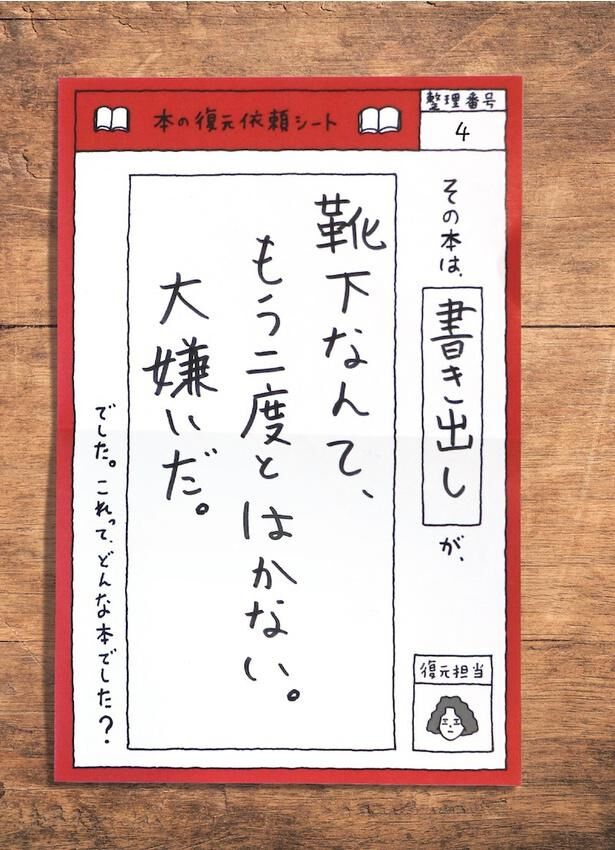 本の復元依頼シート
整理番号
4
その本は、
書き出し
が、
靴下なんて、
もう二度とはかない。
大嫌いだ。
でした。これって、どんな本でした？
復元担当